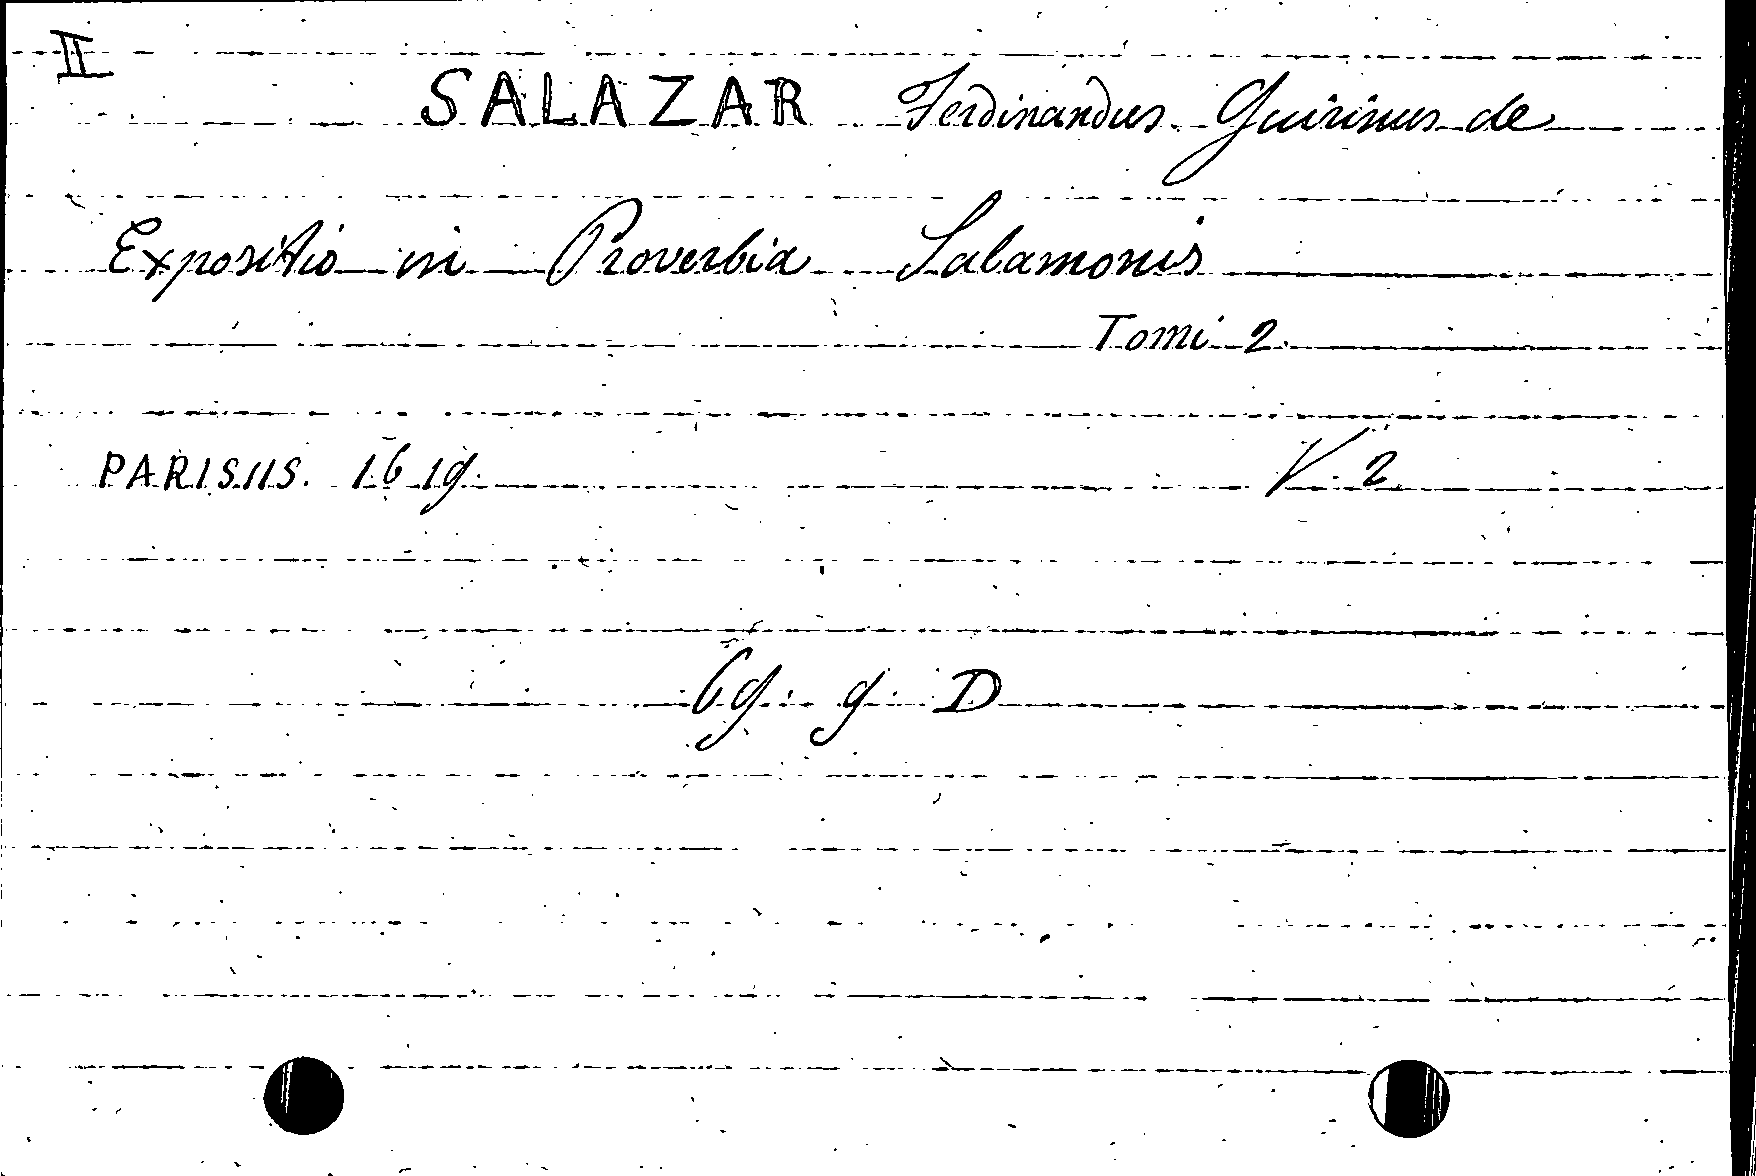 II
SALAZAR Ferdinandus Quirinus de
Expositio in Proverbia Salamonis
Tomi 2.
PARISIIS. 1619. V. 2.
69. 9. D